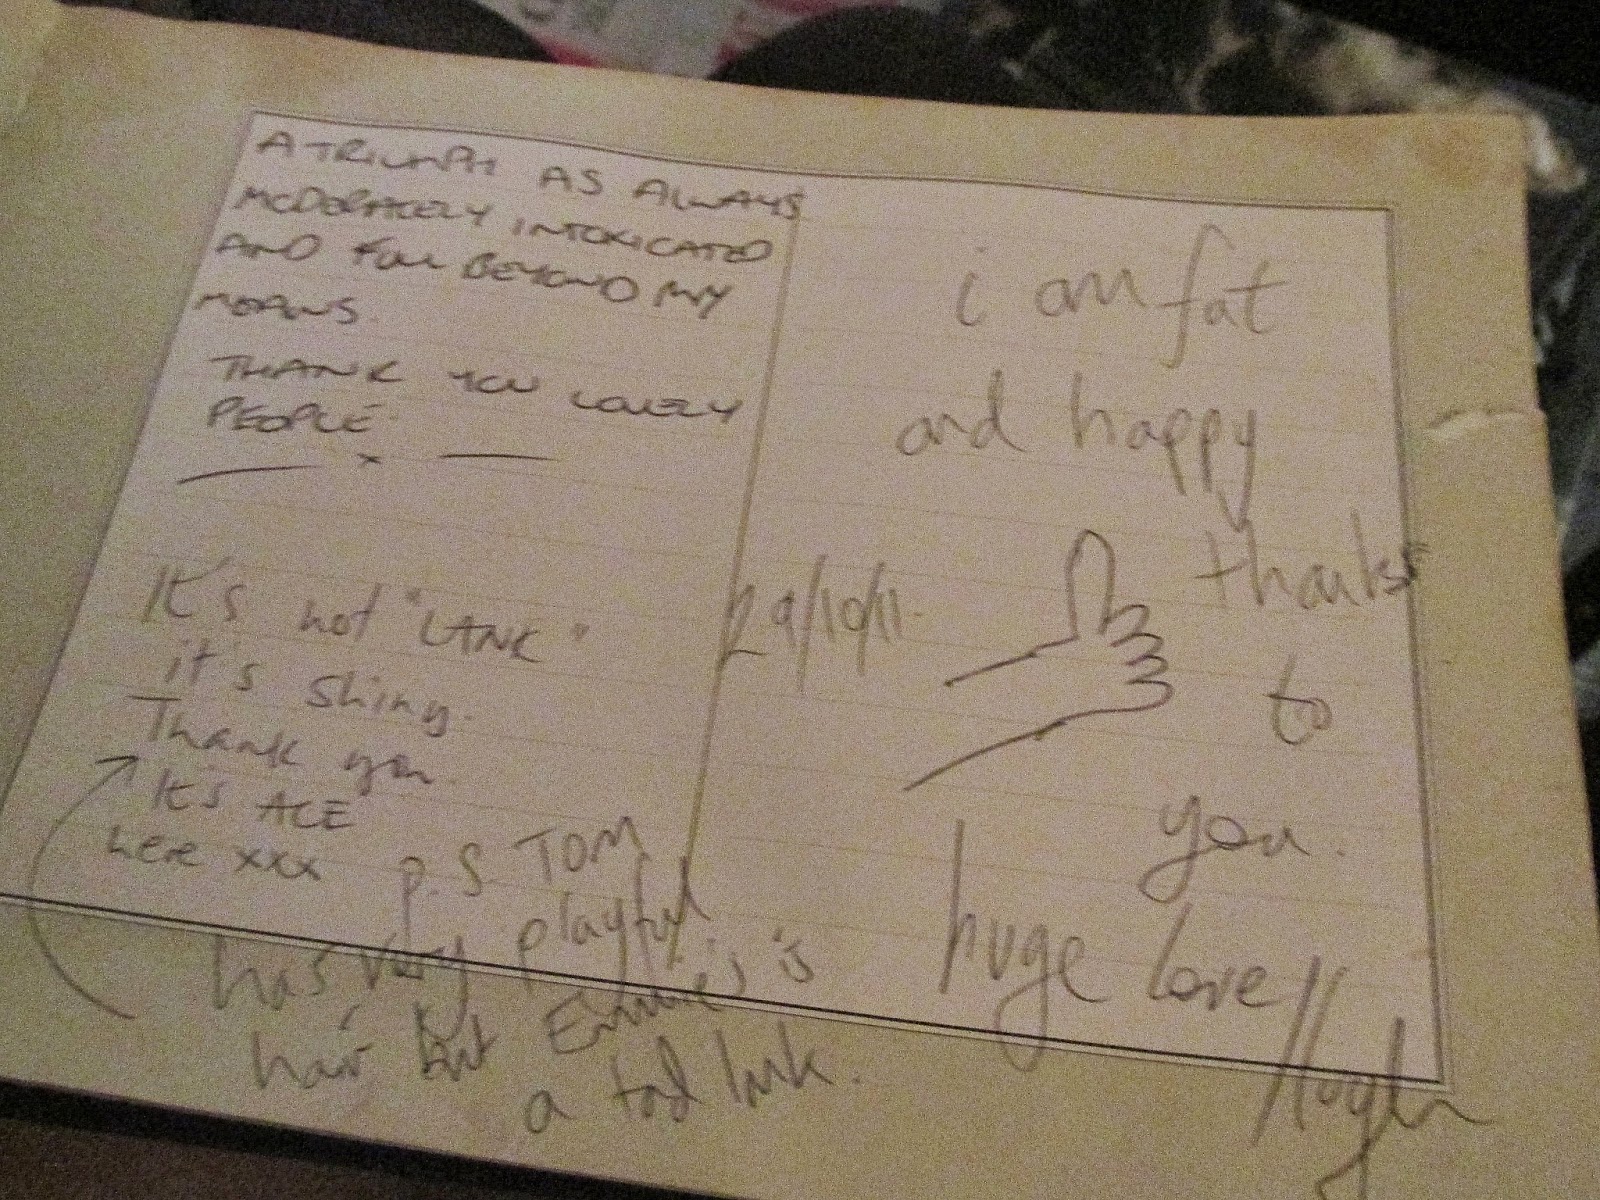 A TRIUMPH AS ALWAYS
MODERATELY INTOXICATED
AND FULL BEYOND MY
MEANS.
THANK YOU LOVELY
PEOPLE.
x
It's not "LANK"
it's shiny.
Thank you
It's ACE
here xxx
P.S TOM
has very playful
hair but Emmie's is
a tad lank.
i am fat
and happy
29/10/11
thanks
to
you.
huge love